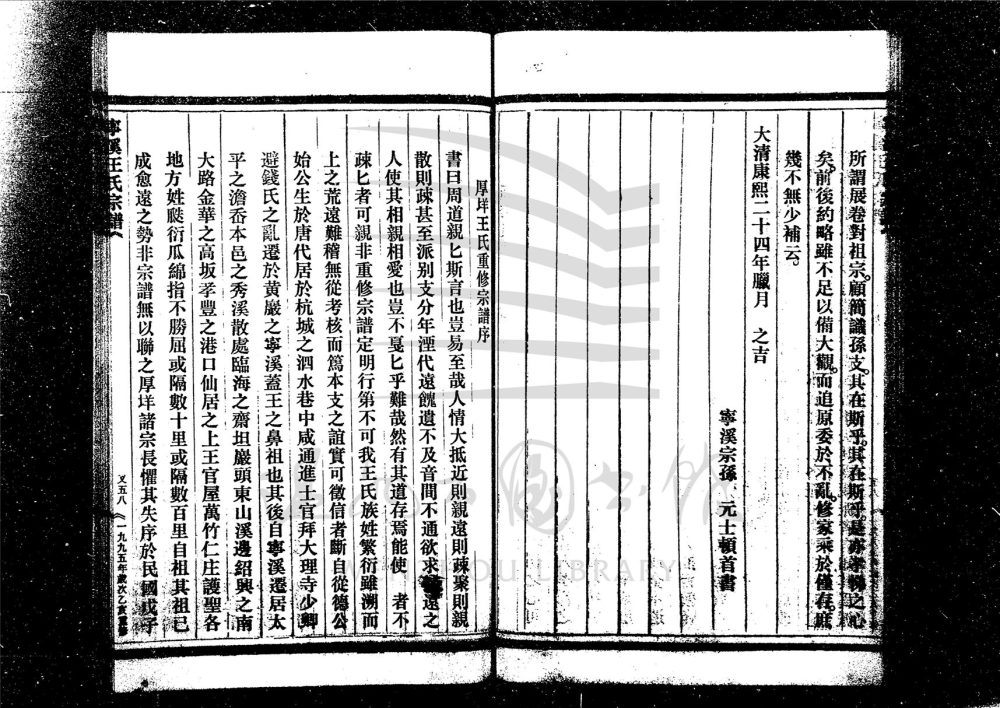 所謂展卷對祖宗。顧簡識孫支。其在斯乎。其在斯乎。是亦孝之心
矣。前後約略雖不足以備大觀。而追原委於不亂。修家乘於僅存。庶
幾不無少補云。
大清康熙二十四年臘月 之吉
寧溪宗孫 元士頓首書
厚垟王氏重修宗譜序
書曰周道親匕斯言也豈易至哉人情大抵近則親遠則疎聚則親
散則疎甚至派別支分年湮代遠餽遺不及音問不通欲求遠之
人使其相親相愛也豈不戛匕乎難哉然有其道存焉能使 者不
疎匕者可親非重修宗譜定明行第不可我王氏族姓繁衍雖溯而
上之荒遠難稽無從考核而篤本支之誼實可徵信者斷自從德公
始公生於唐代居於杭城之泗水巷中咸通進士官拜大理寺少卿
避錢氏之亂遷於黃巖之寧溪蓋王之鼻祖也其後自寧溪遷居太
平之澹岙本邑之秀溪散處臨海之齋坦巖頭東山溪邊紹興之南
大路金華之高坂孝豐之港口仙居之上王官屋萬竹仁庄護聖各
地方姓瓞衍瓜綿指不勝屈或隔數十里或隔數百里自祖其祖已
成愈遠之勢非宗譜無以聯之厚垟諸宗長懼其失序於民國戊子
寧溪王氏宗譜
又五八
一九九五年歲次乙亥重修
LIBRARY